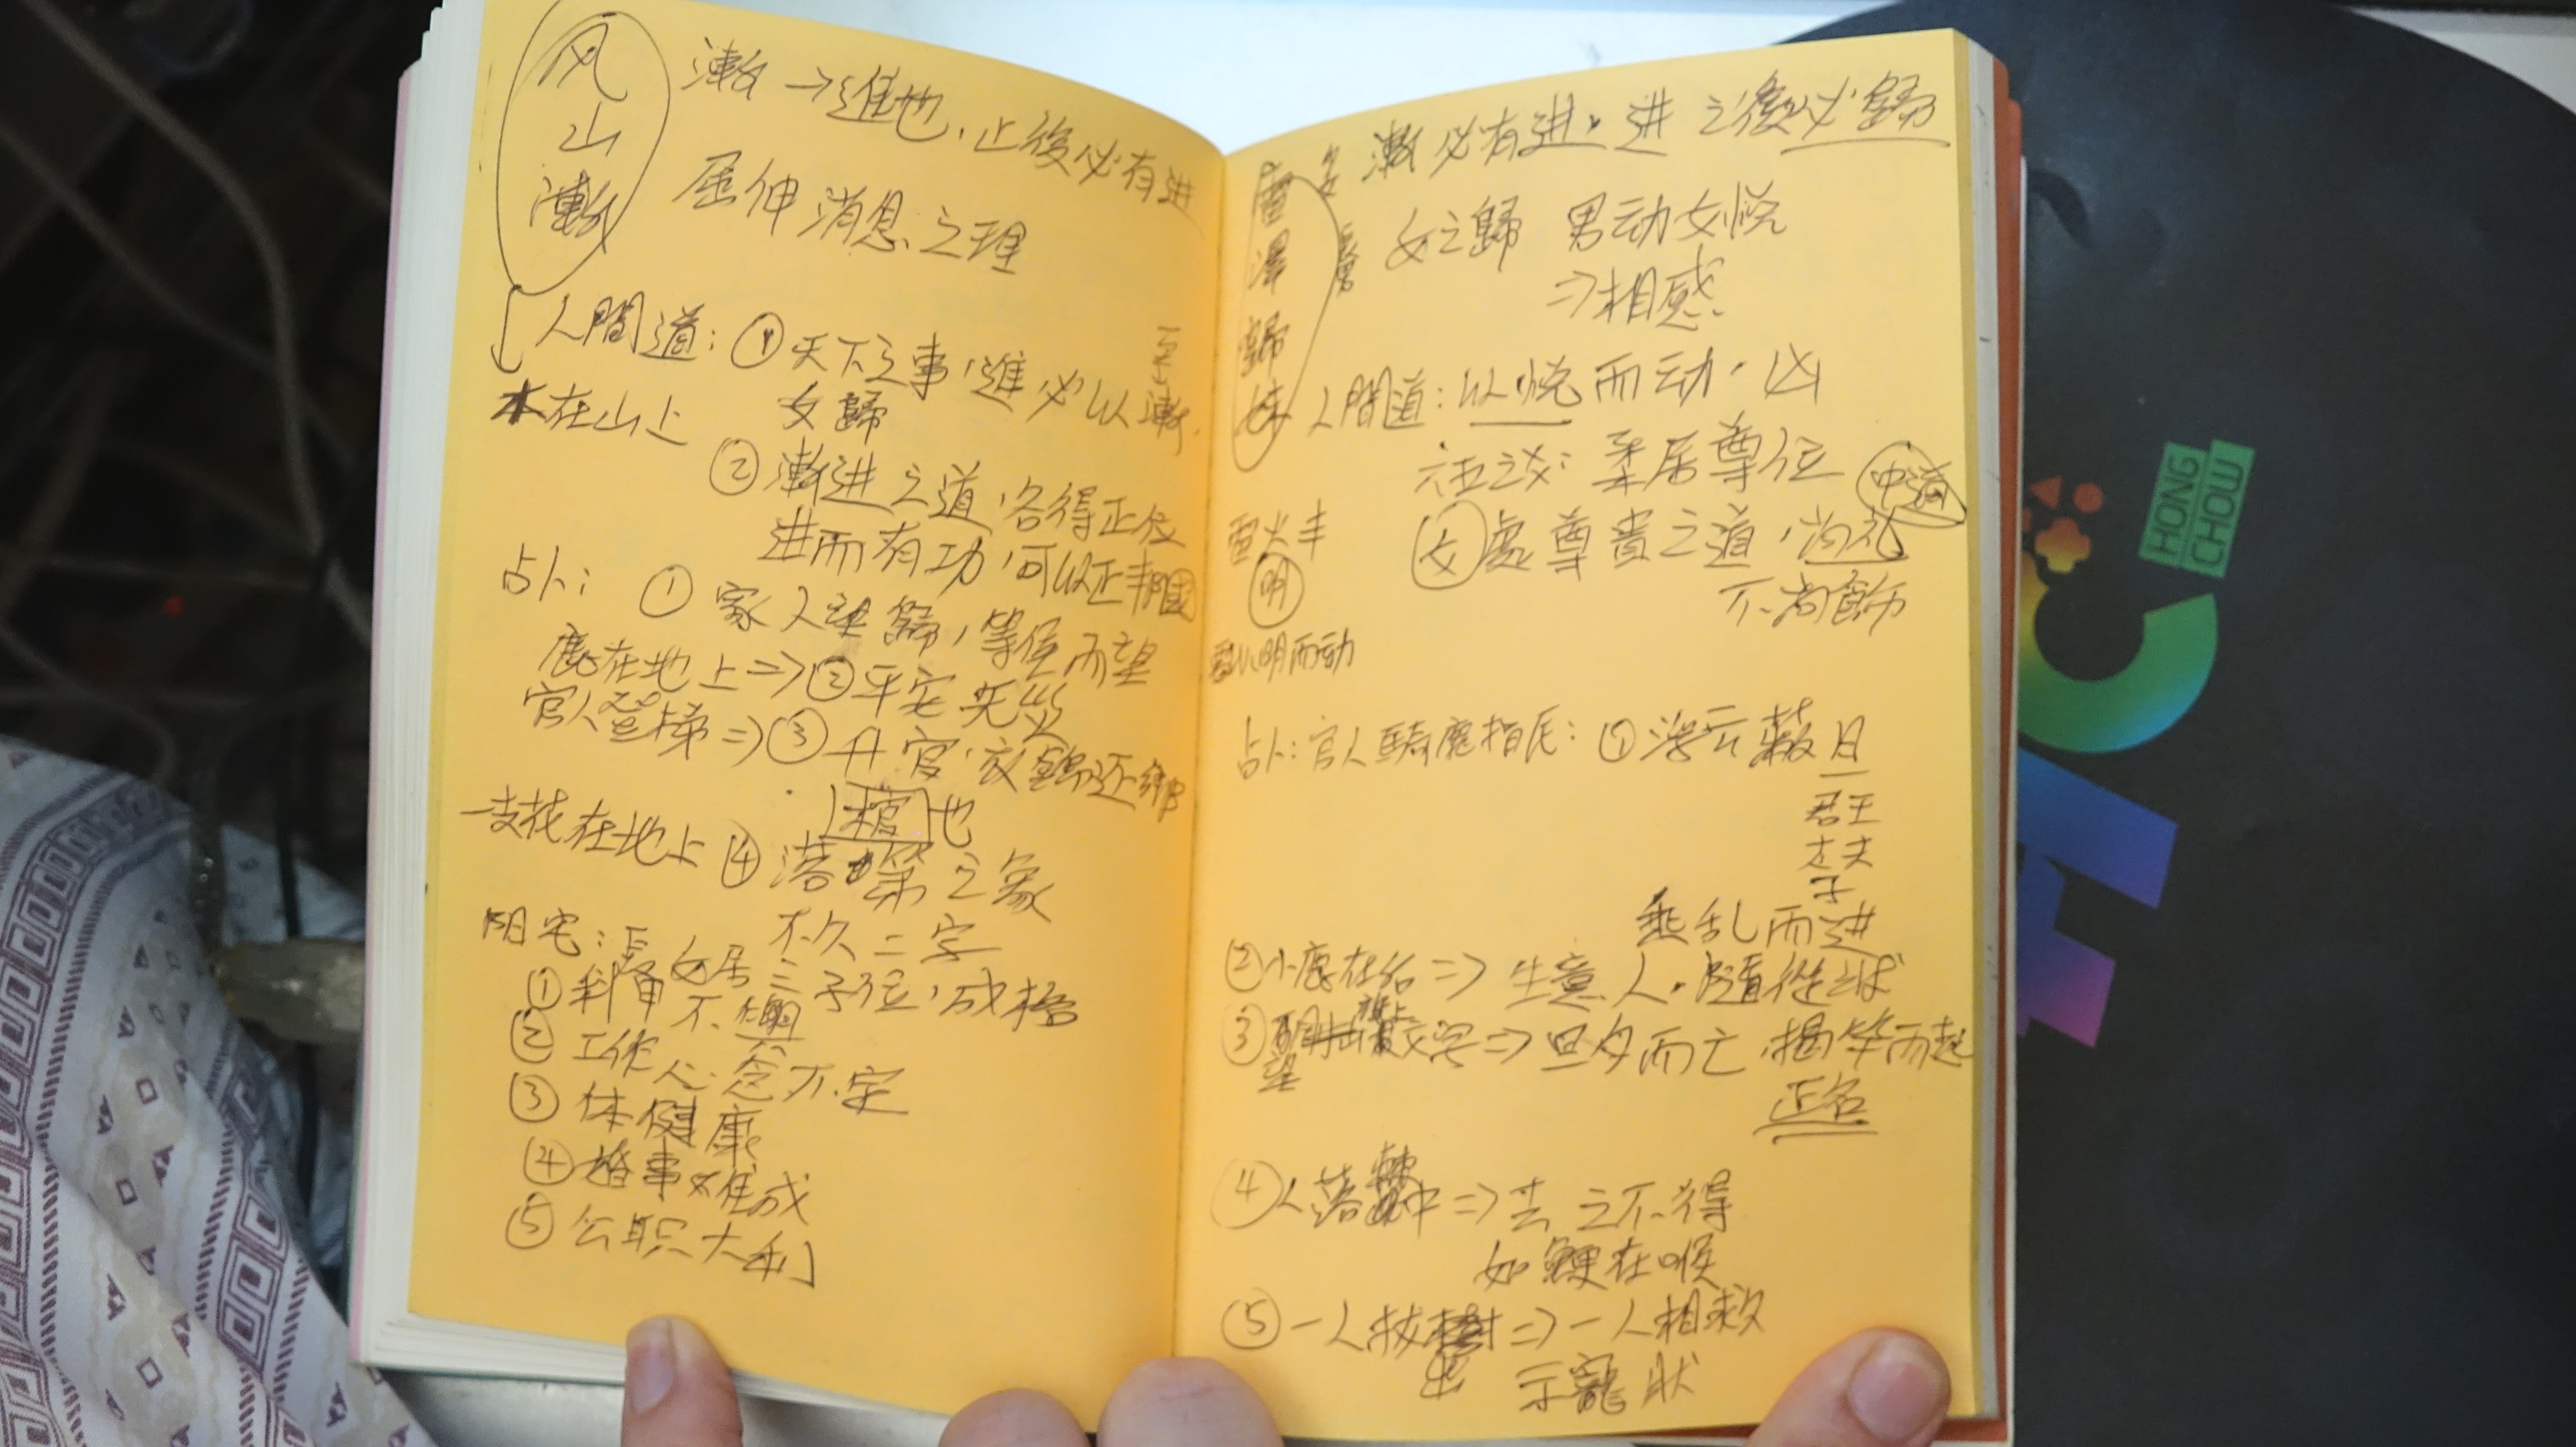 风山漸
漸→進也，止後必有进
屈伸消息之理
人間道：① 天下之事，進必以漸，
木在山上 女歸
② 漸进之道，各得正位
进而有功，可以正邦国
占卜：① 家人 歸，等侯而望
鹿在地上⇒② 平安无災
官人登梯⇒③ 升官，衣錦还鄉
棺也
一支花在地上 ④ 落第之象
不久二字
阳宅：長女居三子位，成格
① 不
② 工作心念不定
③ 体健康
④ 婚事难成
⑤ 公职大利
雷澤歸妹
漸必有进，进之後必歸
女之歸 男动女悦
⇒相感
人間道：以悦而动，凶
六五之爻：柔居尊位 中道
女處尊貴之道，尚礼
不尚飾
雷火丰
明
以明而动
占卜：官人騎鹿指 ：① 浮云蔽日
君王
丈夫
子
乘乱而进
② 小鹿在 ⇒ 生意人，隨從之状
③ 望 文 ⇒ 旦夕而亡，揭竿而起
正名
④ 人落 中⇒去之不得
如鯁在喉
⑤ 一人 樹⇒一人相救
示寵状
HONG
CHOW